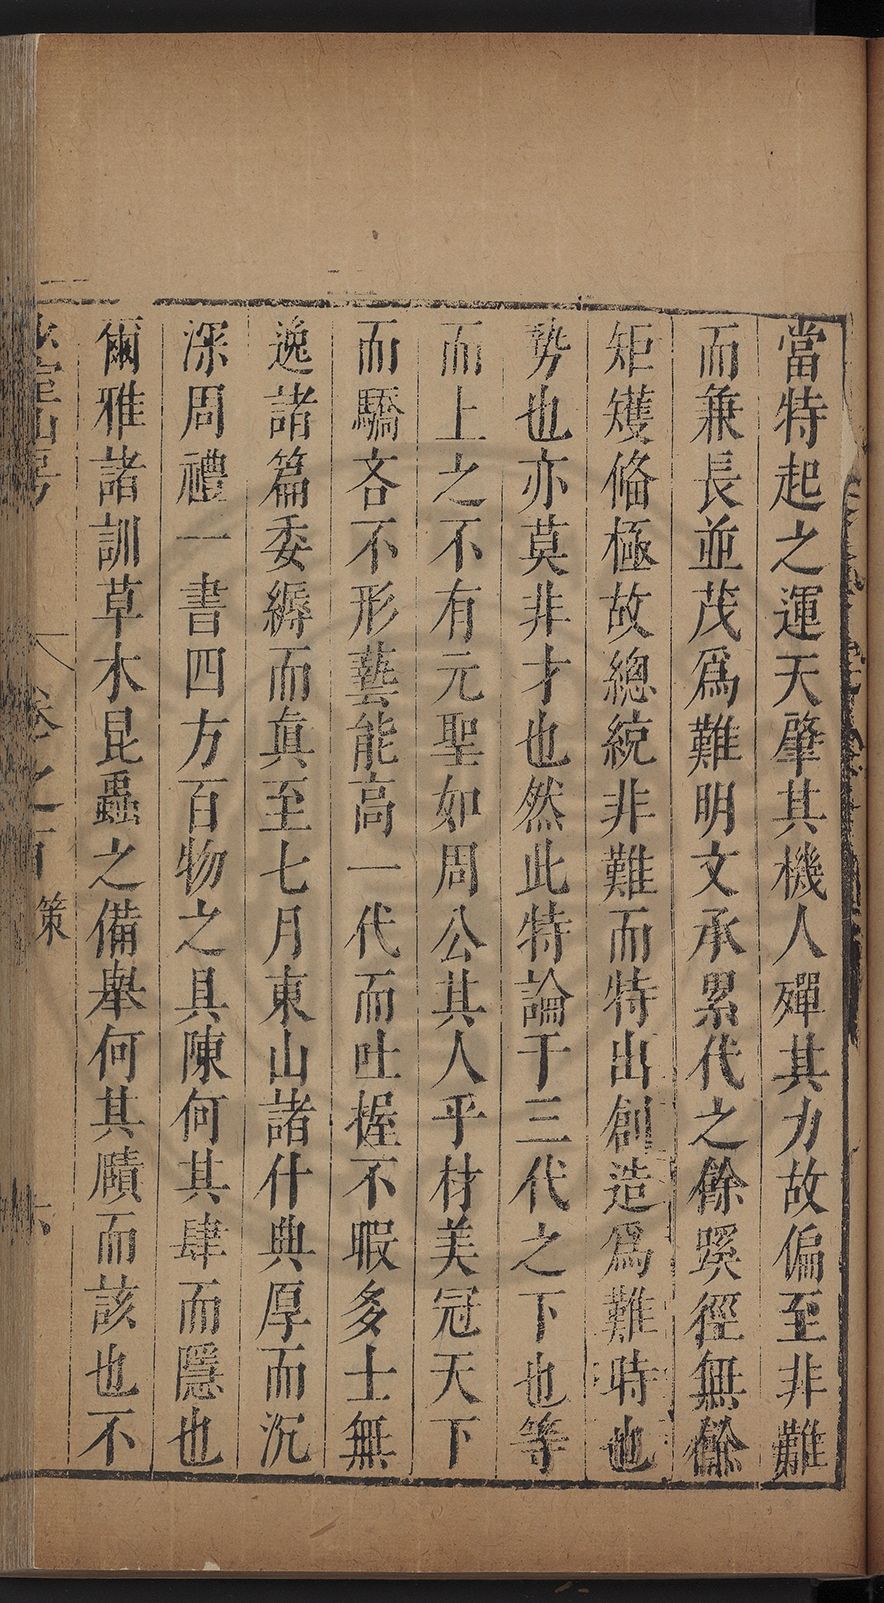 當特起之運天肇其機人殫其力故偏至非難
而兼長並茂爲難明文承累代之餘蹊徑無餘
矩矱俻極故總統非難而特出創造爲難時也
势也亦莫非才也然此特論于三代之下也等
而上之不有元聖如周公其人乎材美冠天下
而驕吝不形藝能高一代而吐握不暇多士無
逸諸篇委縟而眞至七月東山諸什典厚而沉
深周禮一書四方百物之具陳何其肆而隱也
爾雅諸訓草木昆蟲之備舉何其賾而該也不
室山房 卷之百 策 六